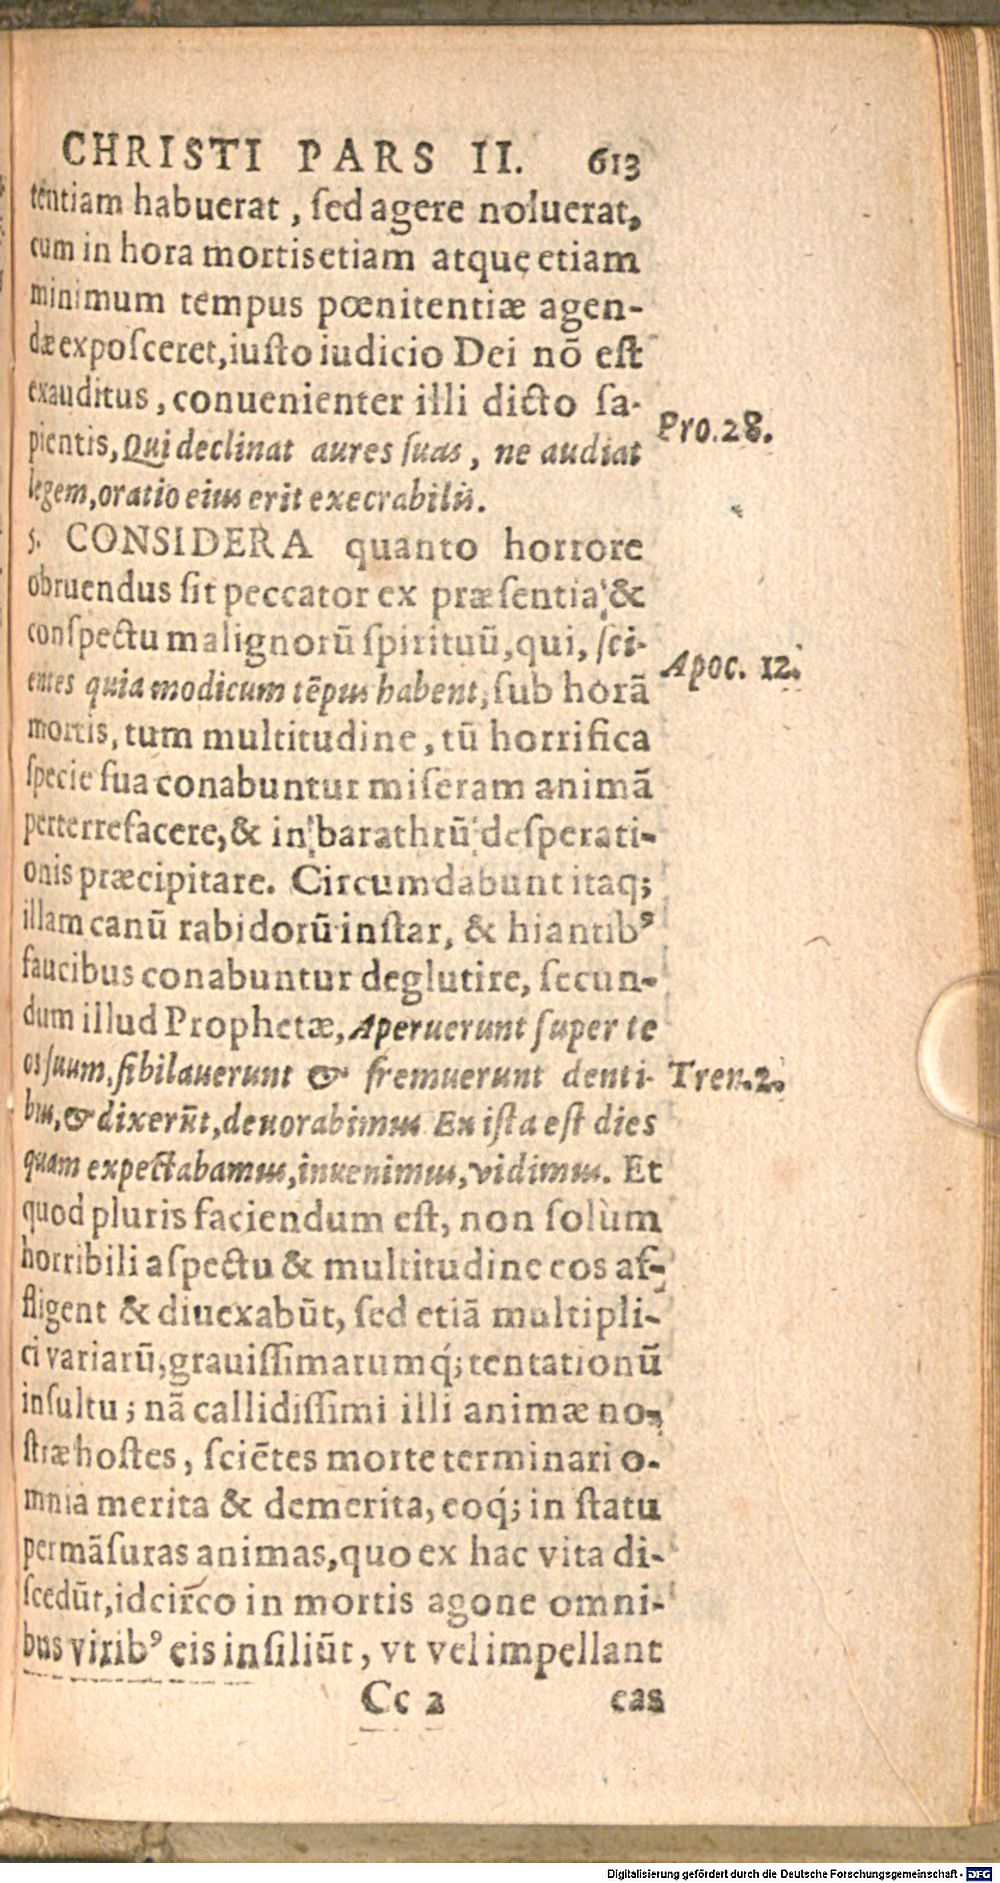 CHRISTI PARS II. 613
tentiam habuerat, ſed agere noluerat,
cum in hora mortis etiam atque etiam
minimum tempus pœnitentiæ agen-
dæ expoſceret, iuſto iudicio Dei nō eſt
exauditus, conuenienter illi dicto ſa-
pientis, Qui declinat aures ſuas, ne audiat
legem, oratio eius erit execrabilis.
Pro. 28.
5. CONSIDERA quanto horrore
obruendus ſit peccator ex præſentia, &
conſpectu malignorū ſpirituū, qui, ſci-
entes quia modicum tēpus habent, ſub horā
Apoc. 12.
mortis, tum multitudine, tū horrifica
ſpecie ſua conabuntur miſeram animā
perterrefacere, & in barathrū deſperati-
onis præcipitare. Circumdabunt itaq;
illam canū rabidorū inſtar, & hiantibꝰ
faucibus conabuntur deglutire, ſecun-
dum illud Prophetæ, Aperuerunt ſuper te
os ſuum, ſibilauerunt & fremuerunt denti-
Tren. 2.
bus, & dixerūt, deuorabimus En iſta eſt dies
quam expectabamus, inuenimus, vidimus. Et
quod pluris faciendum eſt, non ſolùm
horribili aſpectu & multitudine eos af-
fligent & diuexabūt, ſed etiā multipli-
ci variarū, grauiſſimarumq́; tentationū
inſultu; nā callidiſſimi illi animæ no-
ſtræ hoſtes, ſciētes morte terminari o-
mnia merita & demerita, eoq́; in ſtatu
permāſuras animas, quo ex hac vita di-
ſcedūt, idcirco in mortis agone omni-
bus viribꝰ eis inſiliūt, vt vel impellant
Cc 2 eas
Digitalisierung gefördert durch die Deutsche Forschungsgemeinschaft - DFG